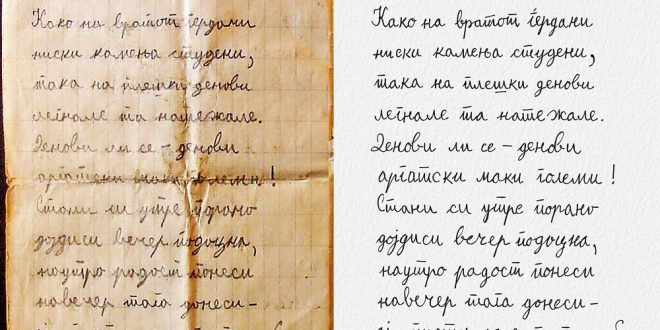 Како на вратот ѓердани
ниски камења студени,
така на плешки денови
легнале та натежале.
Денови ли се – денови
аргатски маки големи!
Стани си утре порано
дојдиси вечер подоцна,
наутро радост понеси
навечер тага донеси –
Како на вратот ѓердани
ниски камења студени,
така на плешки денови
легнале та натежале.
Денови ли се – денови
аргатски маки големи!
Стани си утре порано
дојдиси вечер подоцна,
наутро радост понеси
навечер тага донеси –